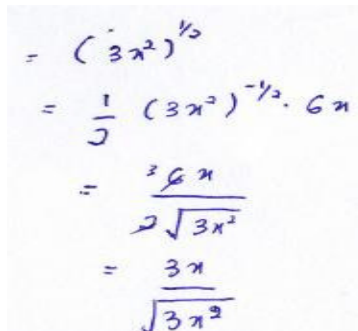 = (3x²)^1/2
= 1/2 (3x²)^-1/2 · 6x
= ³6x / 2√3x²
= 3x / √3x²